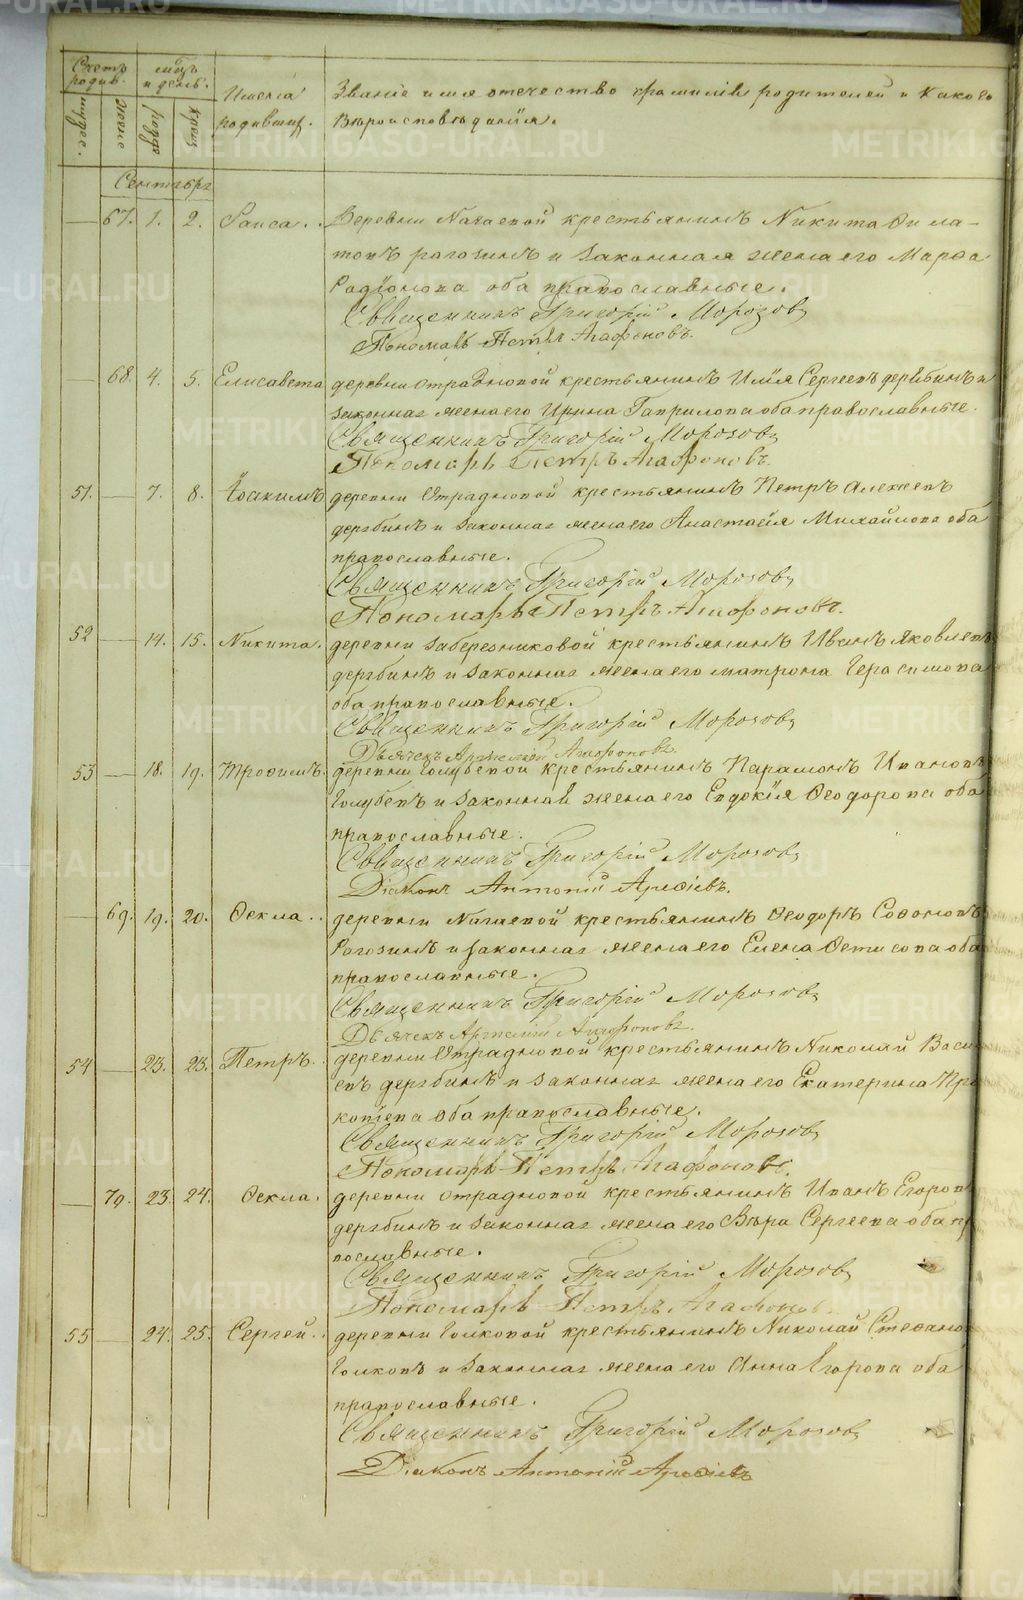 Счетъ родив.
мѣц. и день.
Имена родивших.
Званіе имя отечество и фамилія родителей и какого
Вѣроисповѣданія.
мужес.
женс.
рожд.
крещ.
Сентябрь
— 67. 1. 2. Раиса. Деревни крестьянинъ Никита Фила-
товъ рагозинъ и законная жена его Марѳа
Родіонова оба православные.
Священникъ Григорій Морозовъ
Пономарь Петръ Агафоновъ.
— 68. 4. 5. Елисавета деревни Отрадновой крестьянинъ Илія Сергеевъ дерябинъ и
законная жена его Ирина Гаврилова оба православные.
Священникъ Григорій Морозовъ
Пономарь Петръ Агафоновъ.
51. — 7. 8. Іоакимъ деревни Отрадновой крестьянинъ Петръ Алексеевъ
дерябинъ и законная жена его Анастасія Михайлова оба
православные.
Священникъ Григорій Морозовъ
Пономарь Петръ Агафоновъ.
52 — 14. 15. Никита. деревни Заберезниковой крестьянинъ Иванъ Яковлевъ
дерябинъ и законная жена его матрона Герасимова
оба православные.
Священникъ Григорій Морозовъ
Дьячекъ Арсеній Агафоновъ.
53 — 18. 19. Трофимъ. деревни Голубевой крестьянинъ Парамонъ Ивановъ
Голубевъ и законная жена его Евдокія Ѳеодорова оба
православные.
Священникъ Григорій Морозовъ
Діаконъ Антоній Арефіевъ.
— 69. 19. 20. Ѳекла.. деревни крестьянинъ Ѳеодоръ Софоновъ
Рагозинъ и законная жена его Елена Фетисова оба
православные.
Священникъ Григорій Морозовъ
Дьячекъ Арсеній Агафоновъ.
54 — 23. 23. Петръ. деревни Отрадновой крестьянинъ Николай Васи
евъ дерябинъ и законная жена его Екатерина Про
копіева оба православные.
Священникъ Григорій Морозовъ
Пономарь Петръ Агафоновъ.
— 70. 23. 24. Ѳекла. деревни Отрадновой крестьянинъ Иванъ Егоров
дерябинъ и законная жена его Вѣра Сергеева оба пр
вославные.
Священникъ Григорій Морозовъ
Пономарь Петръ Агафоновъ
55 — 24. 25. Сергей.. деревни Голковой крестьянинъ Николай Стефано
Голковъ и законная жена его Анна Егорова оба
православные.
Священникъ Григорій Морозовъ
Діаконъ Антоній Арефіевъ
METRIKI.GASO-URAL.RU